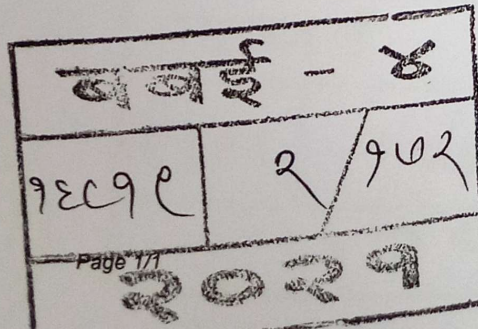 बबई - ४
१६८१९ २/१७२
Page 1/1
२०२१